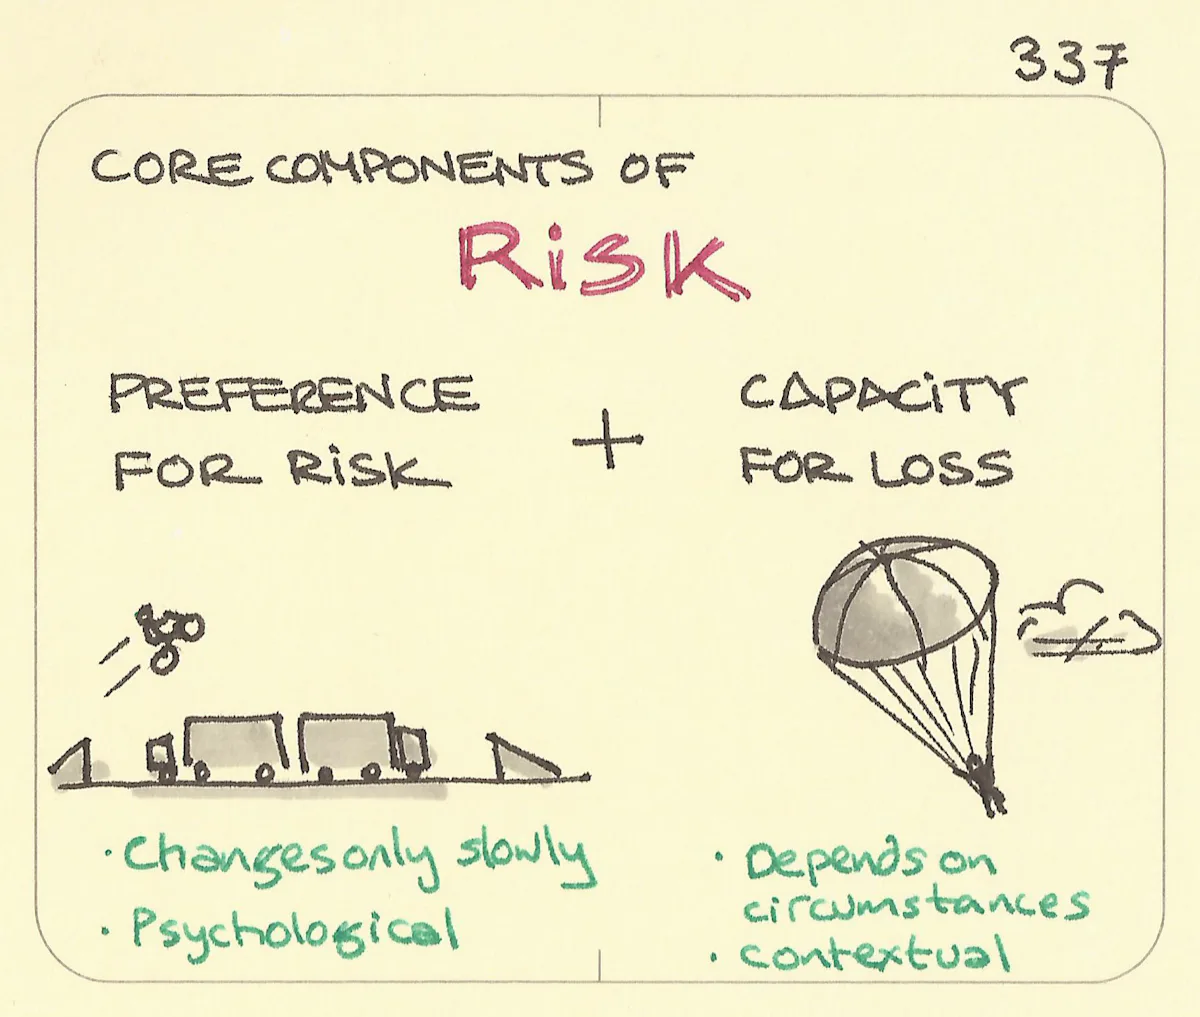 337
CORE COMPONENTS OF
RiSK
PREFERENCE
FOR RiSK
+
CAPACiTY
FOR LOSS
• Changes only slowly
• Psychological
• Depends on
circumstances
• contextual